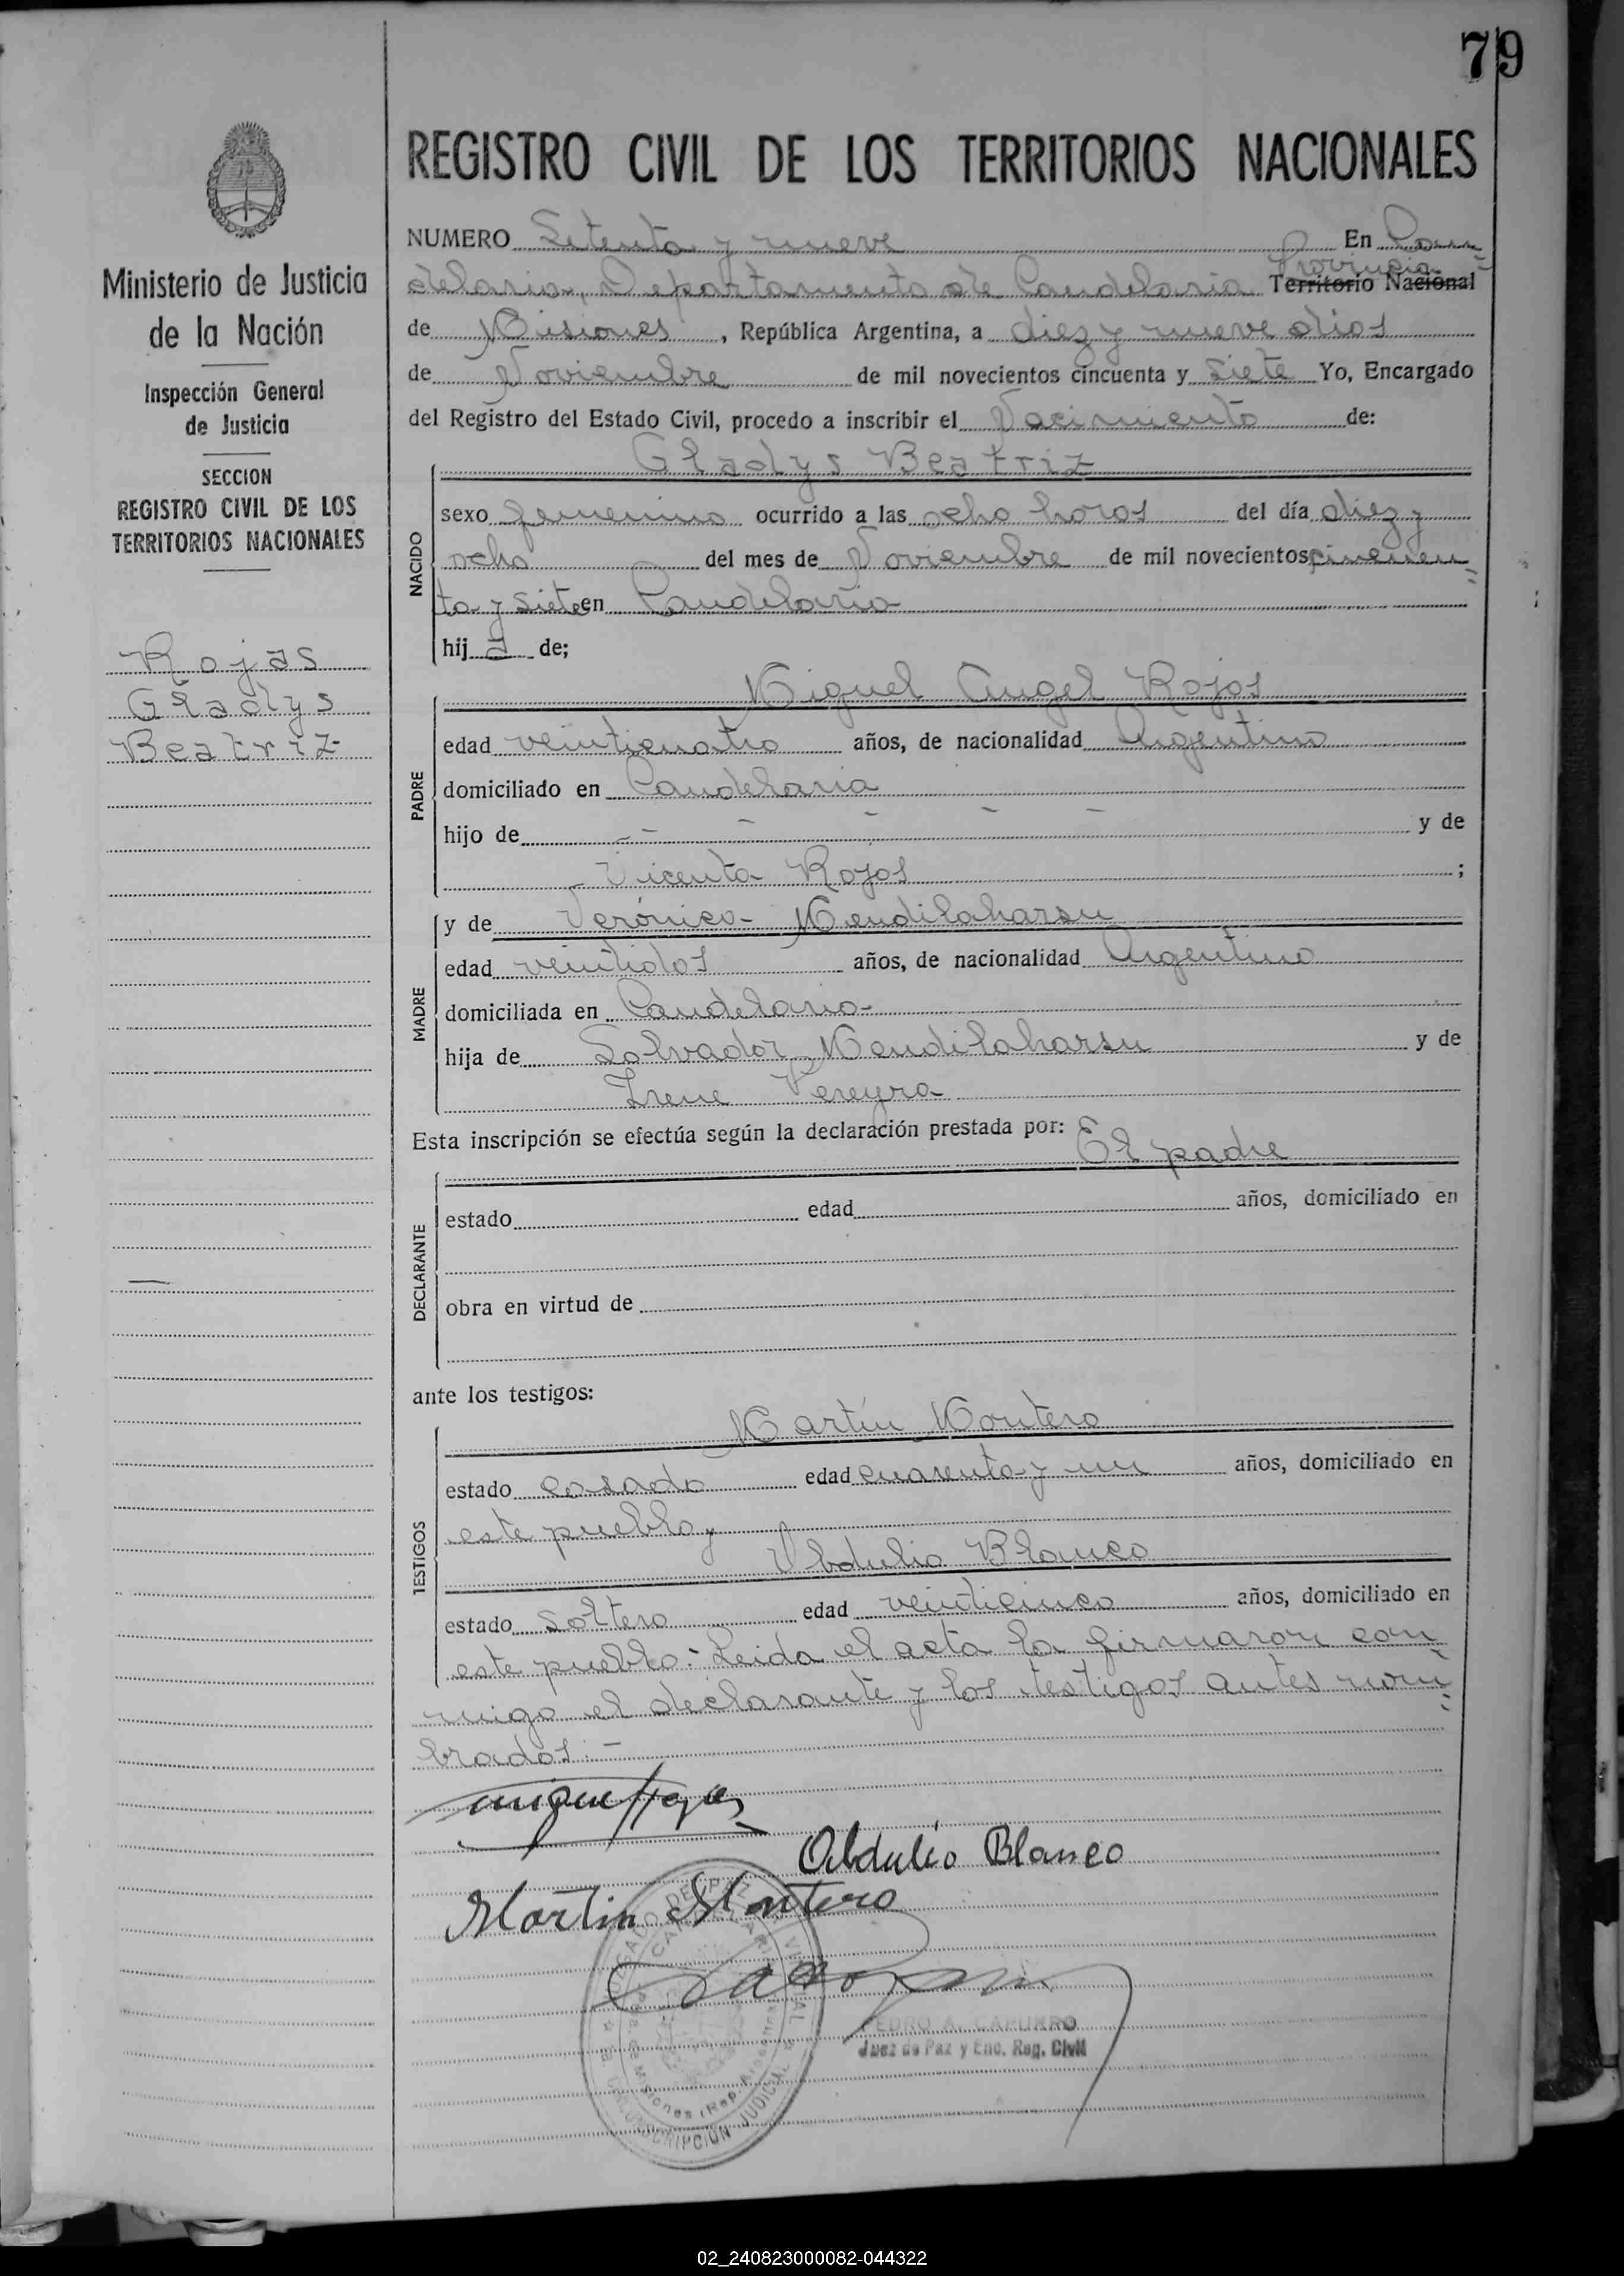 79
REGISTRO CIVIL DE LOS TERRITORIOS NACIONALES
Ministerio de Justicia
de la Nación
Inspección General
de Justicia
SECCION
REGISTRO CIVIL DE LOS
TERRITORIOS NACIONALES
Rojas
Gladys
Beatriz
NUMERO Setenta y nueve En Can=
delaria, Departamento de Candelaria Provincia Territorio Nacional
de Misiones, República Argentina, a diez y nueve dias
de Noviembre de mil novecientos cincuenta y siete Yo, Encargado
del Registro del Estado Civil, procedo a inscribir el Nacimiento de:
Gladys Beatriz
NACIDO
sexo femenino ocurrido a las ocho horas del día diez y
ocho del mes de Noviembre de mil novecientos cincuen=
ta y siete en Candelaria
hij a de;
Miguel Angel Rojas
PADRE
edad veinticuatro años, de nacionalidad Argentino
domiciliado en Candelaria
hijo de - - - - - - y de
Vicenta Rojas ;
y de Verónica Mendilaharsu
MADRE
edad veintidos años, de nacionalidad Argentina
domiciliada en Candelaria
hija de Salvador Mendilaharsu y de
Irene Pereyra
Esta inscripción se efectúa según la declaración prestada por: El padre
DECLARANTE
estado edad años, domiciliado en
obra en virtud de
ante los testigos:
Martín Montero
TESTIGOS
estado casado edad cuarenta y un años, domiciliado en
este pueblo y
Obdulio Blanco
estado soltero edad veinticinco años, domiciliado en
este pueblo.- Leida el acta la firmaron con=
migo el declarante y los testigos antes nom=
brados.-
Obdulio Blanco
Martin Montero
PEDRO A. CAPURRO
Juez de Paz y Enc. Reg. Civil
02_240823000082-044322